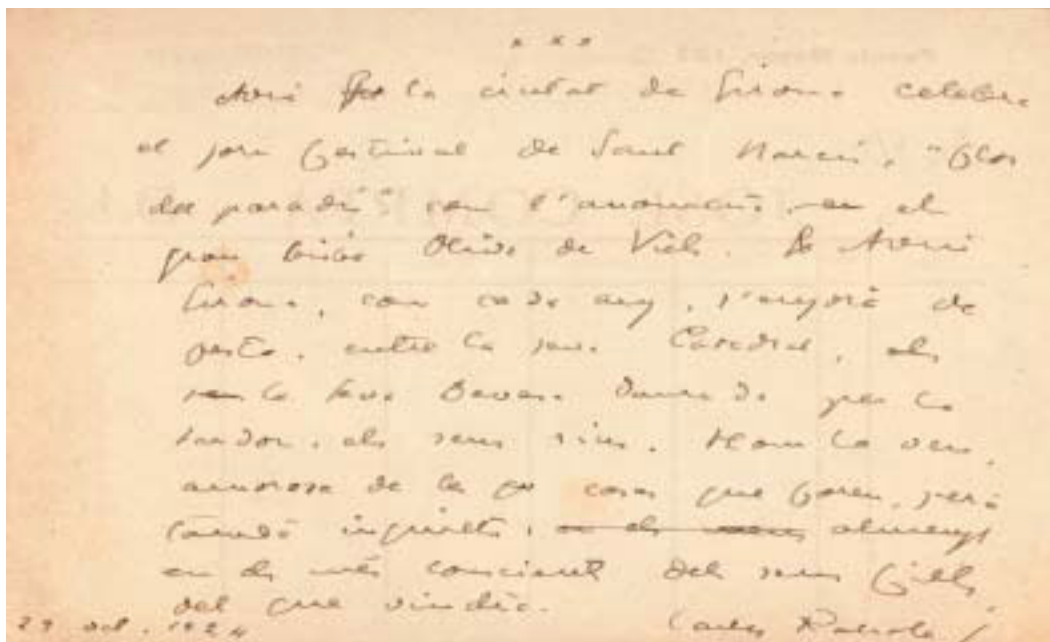 * * *
Avui la ciutat de Girona celebra
el jorn festival de Sant Narcís, "flor
del paradís" com l'anomenà el
gran bisbe Oliva de Vich. Avui
Girona, com cada any,
de
festa, entre la seva Catedral,
la seva Devesa daurada per la
tardor, els seus rius. Hom la veu
amorosa de les coses que foren, però
també inquieta, almenys
en els més conscients dels seus fills,
del que vindrà.
29 oct. 1924 Carles Rahola